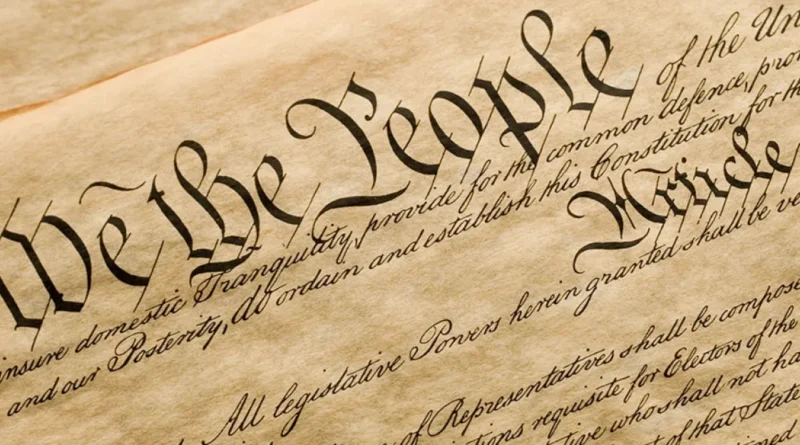 We the People of the Un
insure domestic Tranquility, provide for the common defence, pro
and our Posterity, do ordain and establish this Constitution for th
Article
All legislative Powers herein granted shall be ve
of Representatives shall be compose
tions requisite for Electors of the
tive who shall not ha
of that State